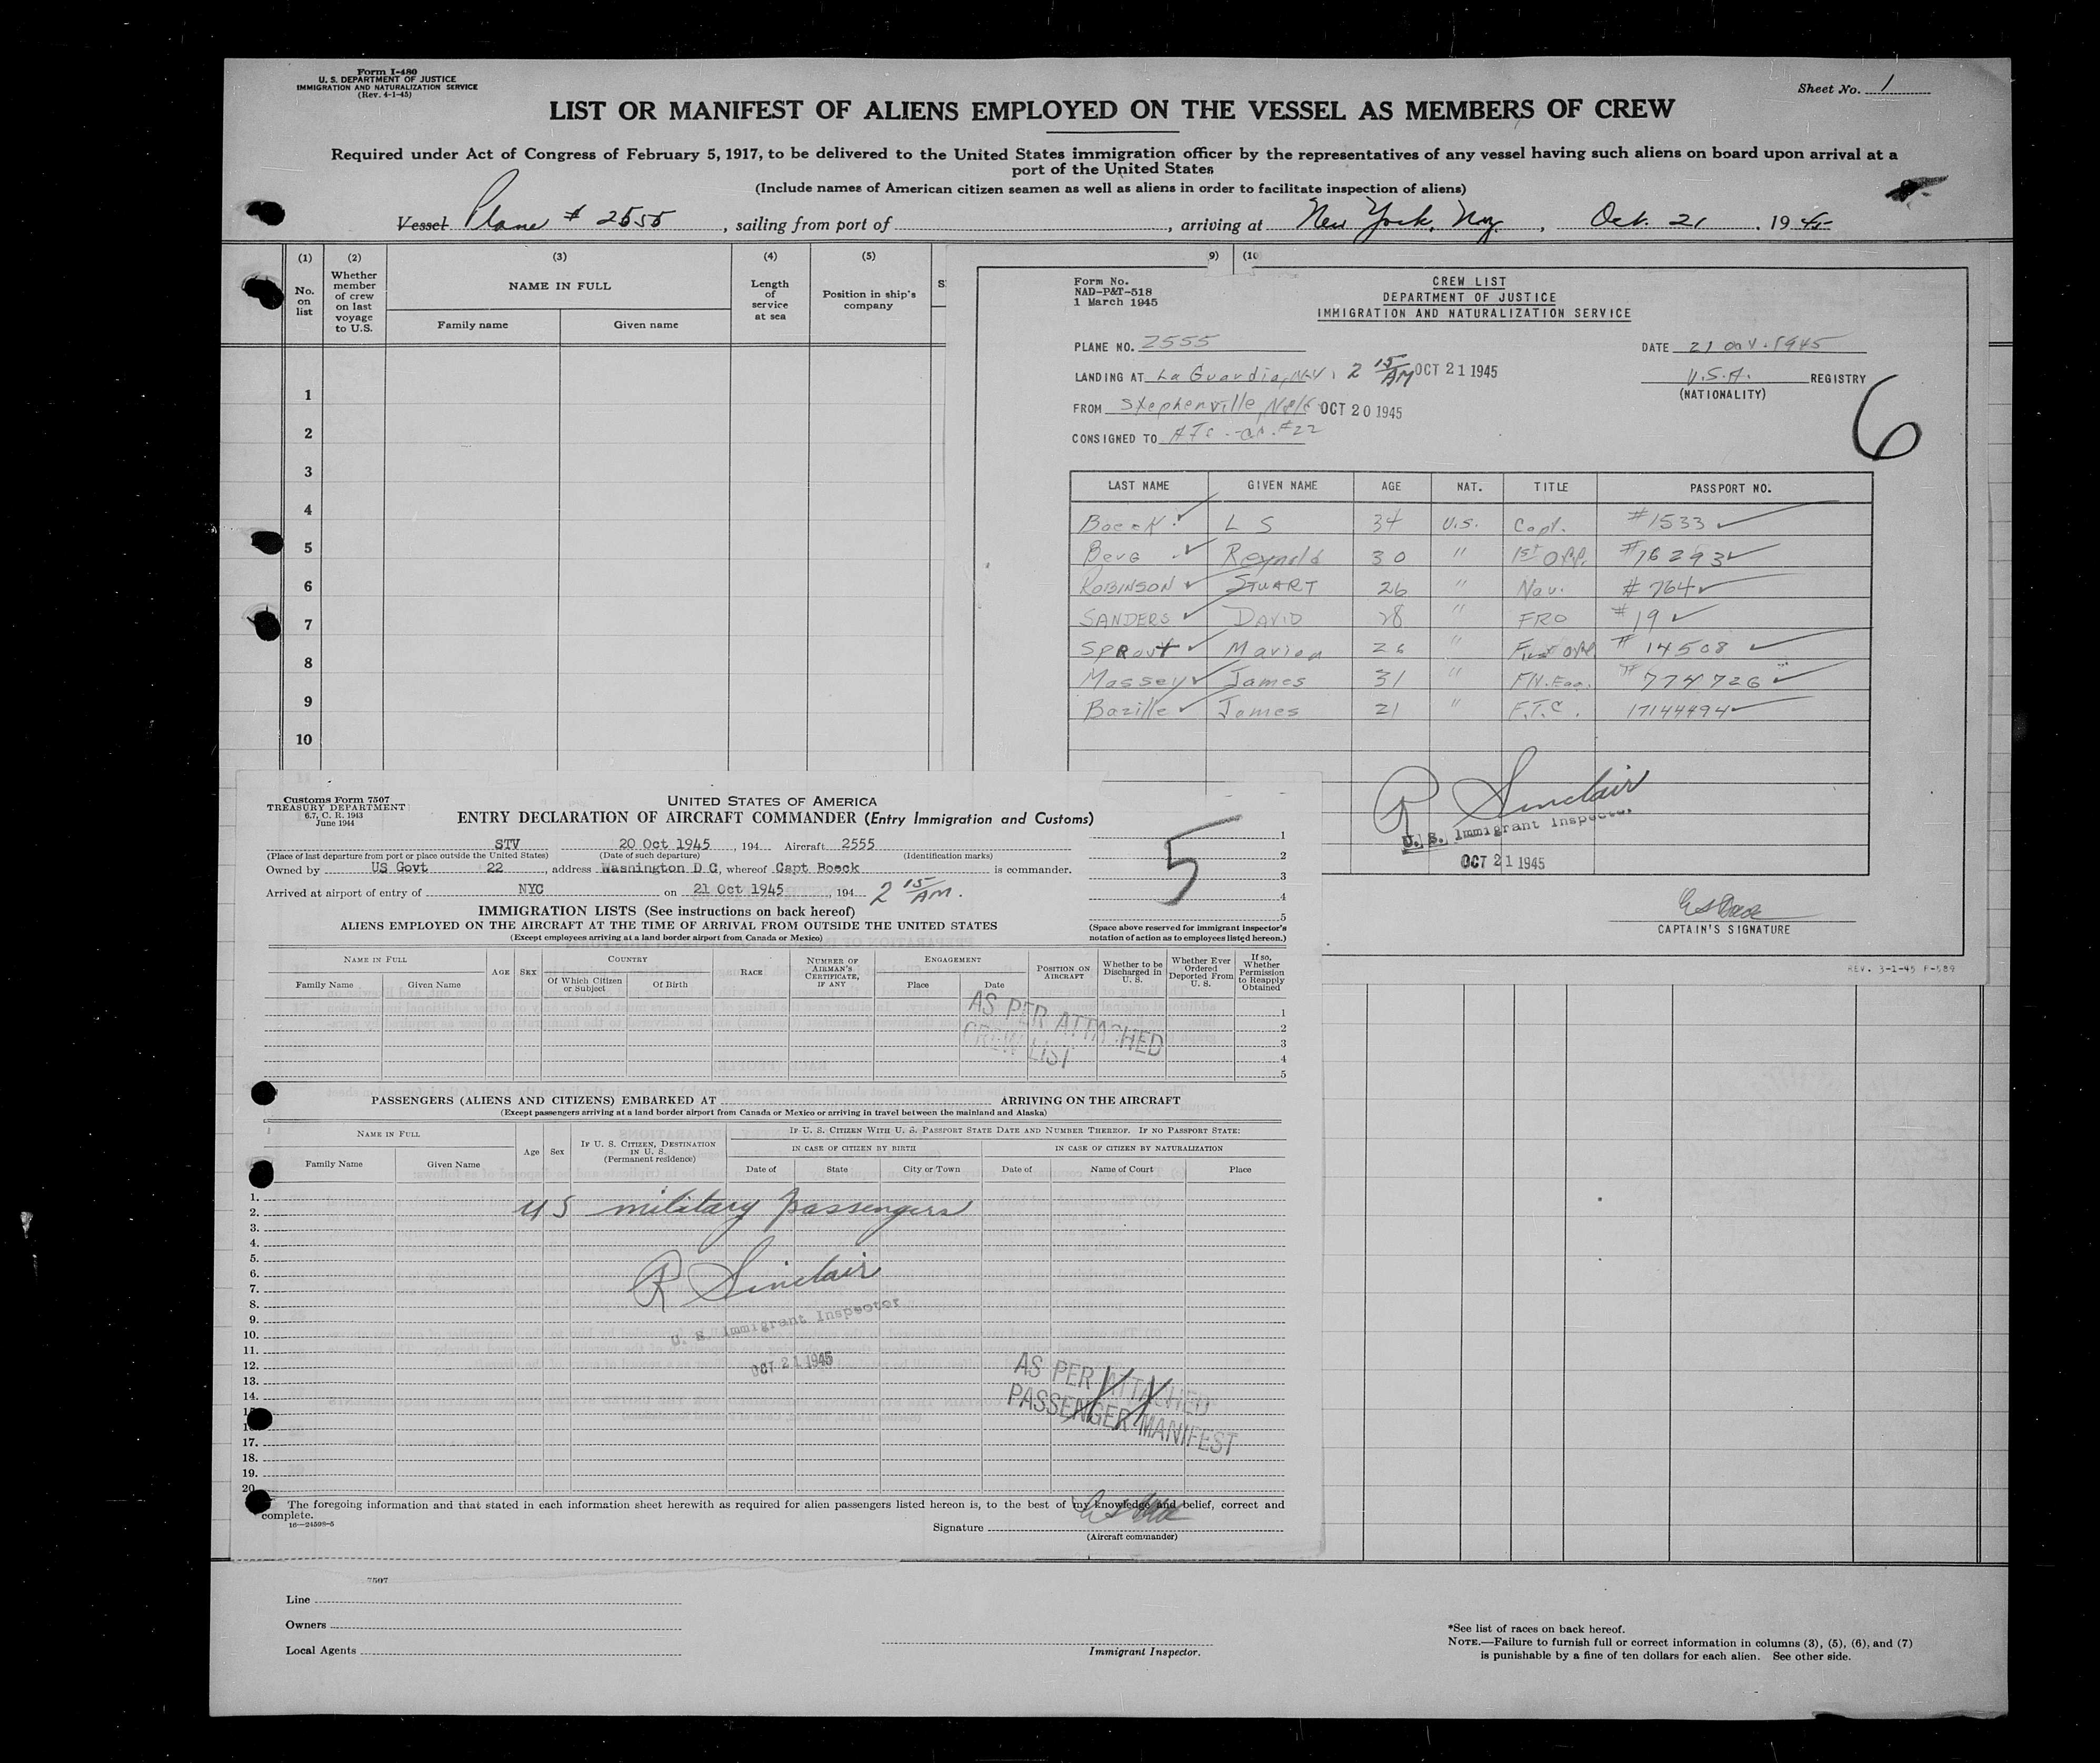 Form I-480
U. S. DEPARTMENT OF JUSTICE
IMMIGRATION AND NATURALIZATION SERVICE
(Rev. 4-1-45)
Sheet No. 1
LIST OR MANIFEST OF ALIENS EMPLOYED ON THE VESSEL AS MEMBERS OF CREW
Required under Act of Congress of February 5, 1917, to be delivered to the United States immigration officer by the representatives of any vessel having such aliens on board upon arrival at a
port of the United States
(Include names of American citizen seamen as well as aliens in order to facilitate inspection of aliens)
Vessel Plane # 2555, sailing from port of , arriving at New York, N.Y., Oct. 21, 1945
(1) (2) (3) (4) (5) 9) (10
No. on list
Whether member of crew on last voyage to U.S.
NAME IN FULL
Family name Given name
Length of service at sea
Position in ship's company
S
1
2
3
4
5
6
7
8
9
10
Form No.
NAD-P&T-518
1 March 1945
CREW LIST
DEPARTMENT OF JUSTICE
IMMIGRATION AND NATURALIZATION SERVICE
PLANE NO. 2555
DATE 21 Oct. 1945
LANDING AT La Guardia, N.Y. 2 15 AM OCT 21 1945
U.S.A. REGISTRY
(NATIONALITY)
FROM Stephenville, Nfld OCT 20 1945
CONSIGNED TO ATC - #22
6
LAST NAME GIVEN NAME AGE NAT. TITLE PASSPORT NO.
Boeck L S 34 U.S. Capt. #1533
Berg Reynold 30 " 1st Off. #76293
ROBINSON STUART 26 " Nav. # 764
SANDERS DAVID 28 " FRO #19
Sprout Marion 26 " First Off # 14508
Massey James 31 " Flt. Eng. # 774726
Bazille James 21 " F.T.C. 17144494
R Sinclair
U. S. Immigrant Inspector
OCT 21 1945
CAPTAIN'S SIGNATURE
REV. 3-1-45 P-589
Customs Form 7507
TREASURY DEPARTMENT
6.7, C. R. 1943
June 1944
UNITED STATES OF AMERICA
ENTRY DECLARATION OF AIRCRAFT COMMANDER (Entry Immigration and Customs)
STV 20 Oct 1945, 194 Aircraft 2555
(Place of last departure from port or place outside the United States) (Date of such departure) (Identification marks)
Owned by US Govt 22, address Washington D C, whereof Capt Boeck is commander.
Arrived at airport of entry of NYC on 21 Oct 1945, 194 2 15 AM.
1
2
3
4
5
5
(Space above reserved for immigrant inspector's
notation of action as to employees listed hereon.)
IMMIGRATION LISTS (See instructions on back hereof)
ALIENS EMPLOYED ON THE AIRCRAFT AT THE TIME OF ARRIVAL FROM OUTSIDE THE UNITED STATES
(Except employees arriving at a land border airport from Canada or Mexico)
NAME IN FULL AGE SEX COUNTRY RACE NUMBER OF AIRMAN'S CERTIFICATE, IF ANY ENGAGEMENT POSITION ON AIRCRAFT Whether to be Discharged in U. S. Whether Ever Ordered Deported From U. S. If so, Whether Permission to Reapply Obtained
Family Name Given Name Of Which Citizen or Subject Of Birth Place Date
AS PER ATTACHED
CREW LIST
1
2
3
4
5
PASSENGERS (ALIENS AND CITIZENS) EMBARKED AT ARRIVING ON THE AIRCRAFT
(Except passengers arriving at a land border airport from Canada or Mexico or arriving in travel between the mainland and Alaska)
NAME IN FULL Age Sex IF U. S. CITIZEN, DESTINATION IN U. S. (Permanent residence) IF U. S. CITIZEN WITH U. S. PASSPORT STATE DATE AND NUMBER THEREOF. IF NO PASSPORT STATE:
IN CASE OF CITIZEN BY BIRTH IN CASE OF CITIZEN BY NATURALIZATION
Family Name Given Name Date of State City or Town Date of Name of Court Place
1.
2. US military passengers
3.
4.
5.
6. R Sinclair
7.
8.
9. U. S. Immigrant Inspector
10.
11.
12. OCT 21 1945
13. AS PER ATTACHED
14. PASSENGER MANIFEST
15
16
17.
18.
19.
20
The foregoing information and that stated in each information sheet herewith as required for alien passengers listed hereon is, to the best of my knowledge and belief, correct and
complete.
16—24598-5
Signature
(Aircraft commander)
7507
Line
Owners
Local Agents
Immigrant Inspector.
*See list of races on back hereof.
NOTE.—Failure to furnish full or correct information in columns (3), (5), (6), and (7)
is punishable by a fine of ten dollars for each alien. See other side.